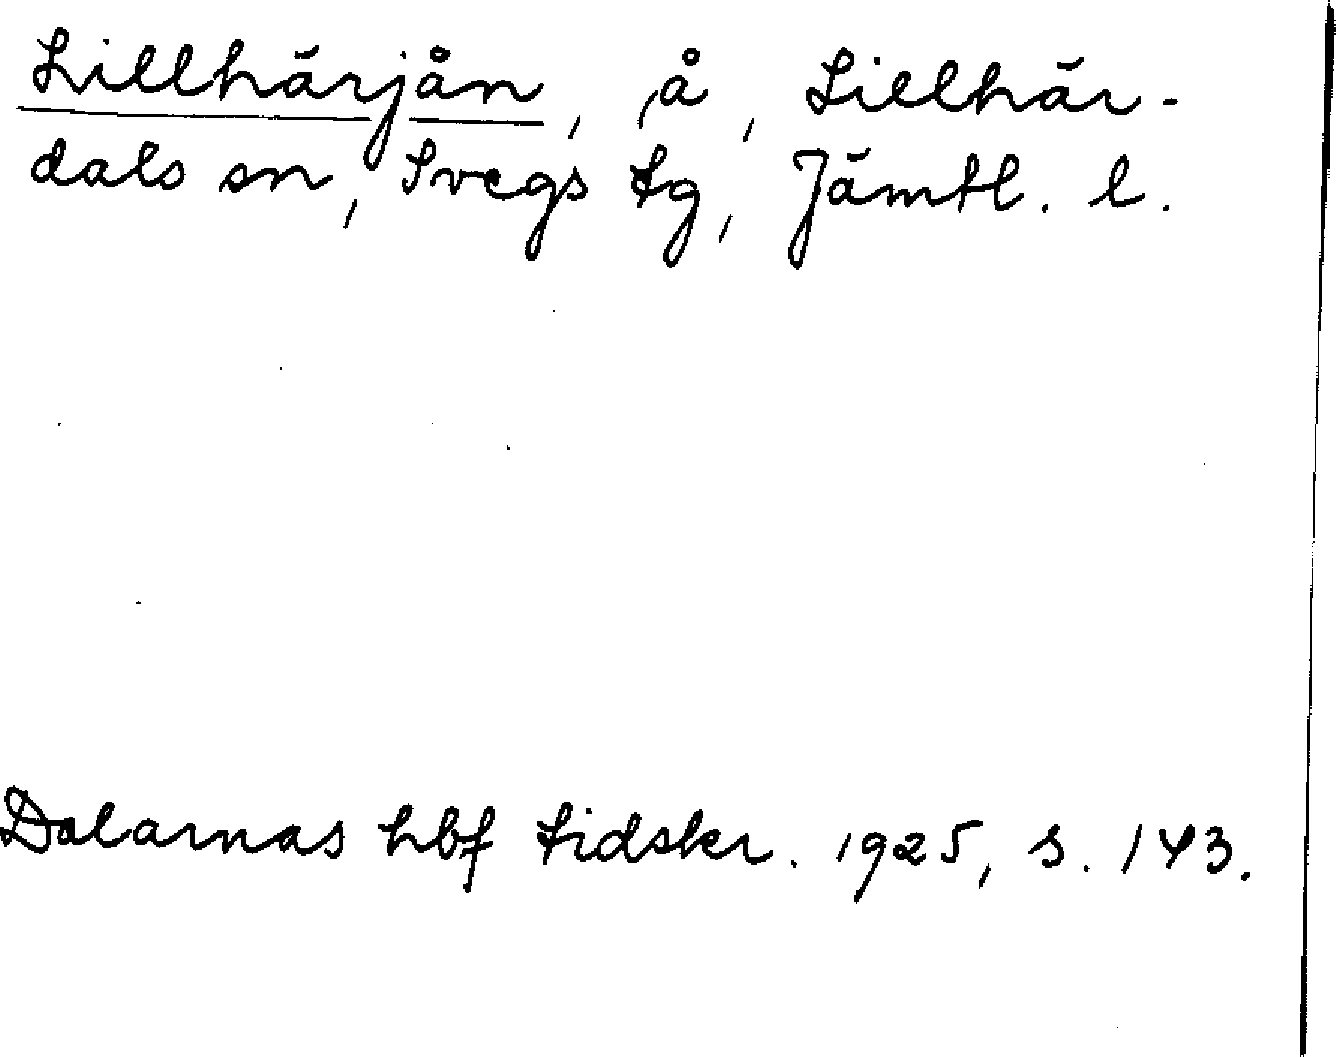 Lillhärjån, å, Lillhär-
dals sn, Svegs tg, Jämtl. l.
Dalarnas hbf tidskr. 1925, s. 143.